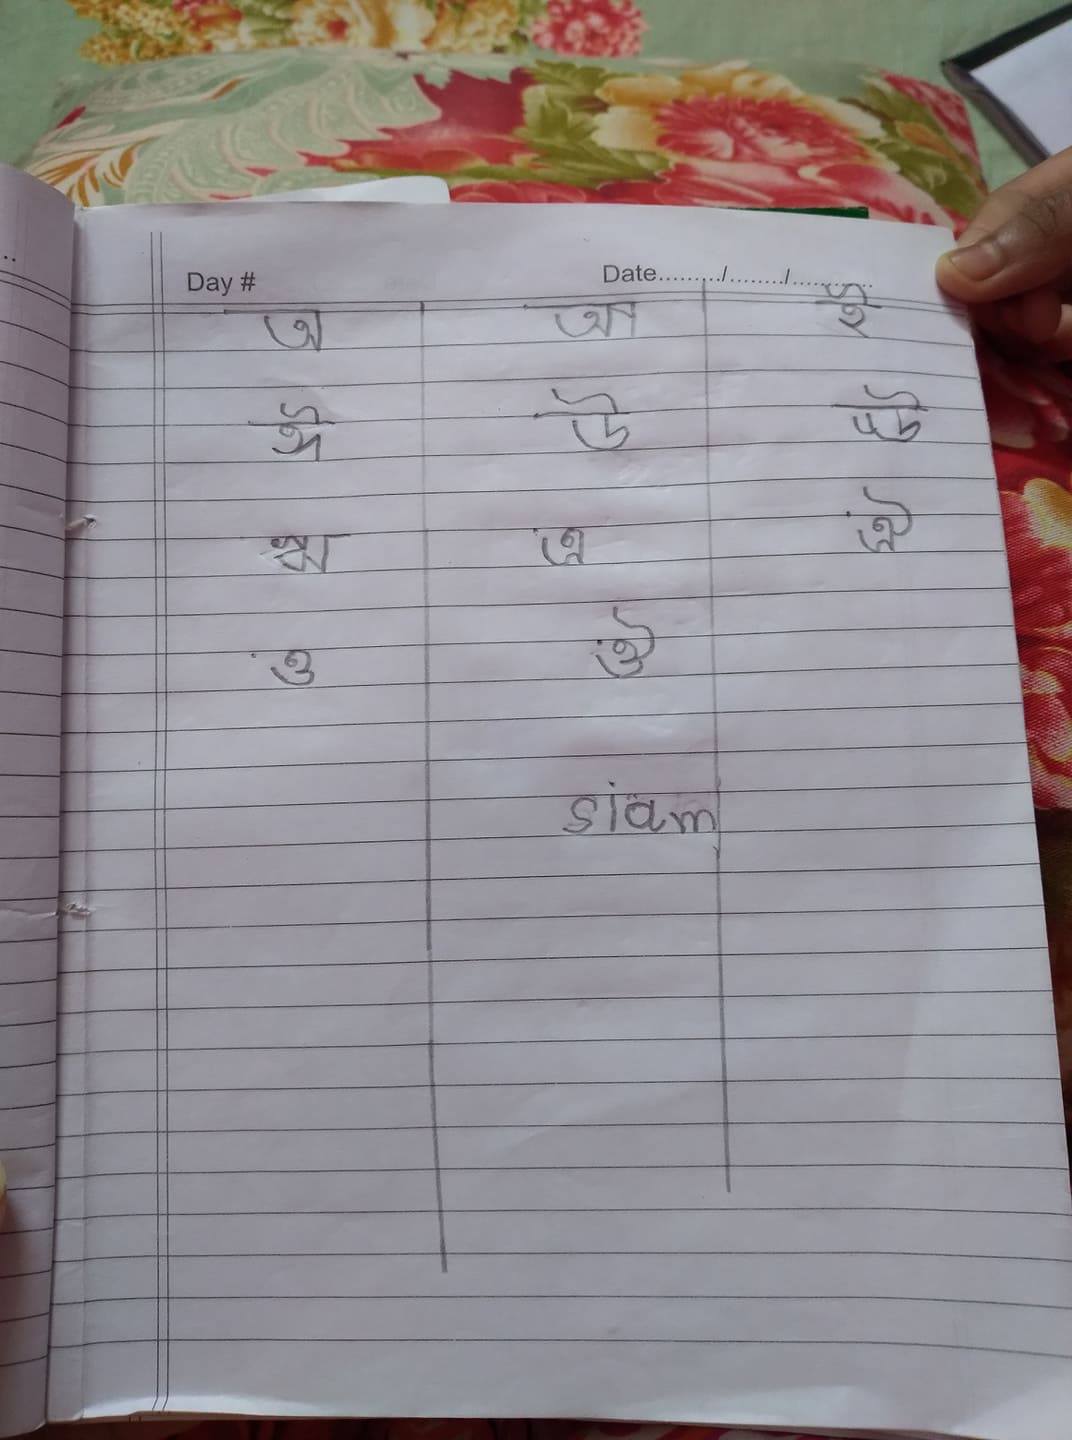 Day # Date........./......../............
অ আ ই
ঈ উ ঊ
ঋ এ ঐ
ও ঔ
siam